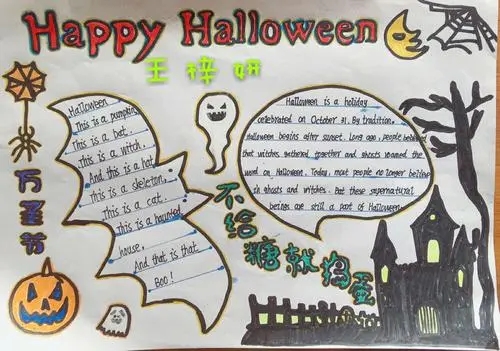 Happy Halloween
王梓妍
Halloween
This is a pumpkin,
This is a bat.
This is a witch.
And this is a hat
This is a skeleton,
This is a cat.
This is a haunted
house,
And that is that
Boo!
Halloween is a holiday
celebrated on October 31. By tradition,
Halloween begins after sunset. Long ago, people believed
that witches gathered together and ghosts roamed the
world on Halloween. Today, most people no longer believe
in ghosts and witches. But these supernatural
beings are still a part of Halloween.
万圣节
不给糖就捣蛋